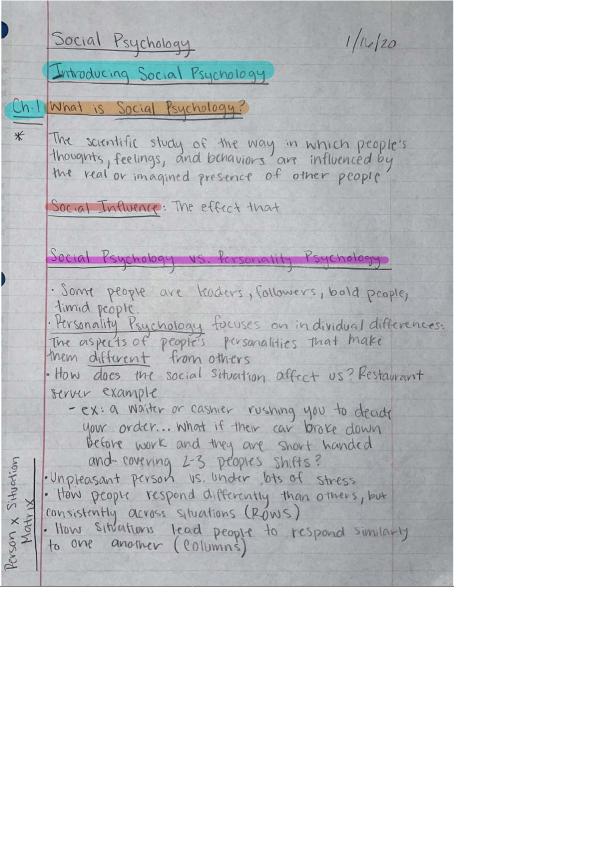 Social Psychology
1/16/20
Introducing Social Psychology
Ch.1 What is Social Psychology?
* The scientific study of the way in which people's
thoughts, feelings, and behaviors are influenced by
the real or imagined presence of other people
Social Influence: The effect that
Social Psychology vs. Personality Psychology
· Some people are leaders, followers, bold people,
timid people.
· Personality Psychology focuses on individual differences:
The aspects of people's personalities that make
them different from others
· How does the social situation affect us? Restaurant
server example
- ex: a waiter or cashier rushing you to decide
your order... what if their car broke down
before work and they are short handed
and covering 2-3 peoples shifts?
· Unpleasant person vs. under lots of stress
· How people respond differently than others, but
consistently across situations (Rows)
· How situations lead people to respond similarly
to one another (columns)
Person x Situation
Matrix